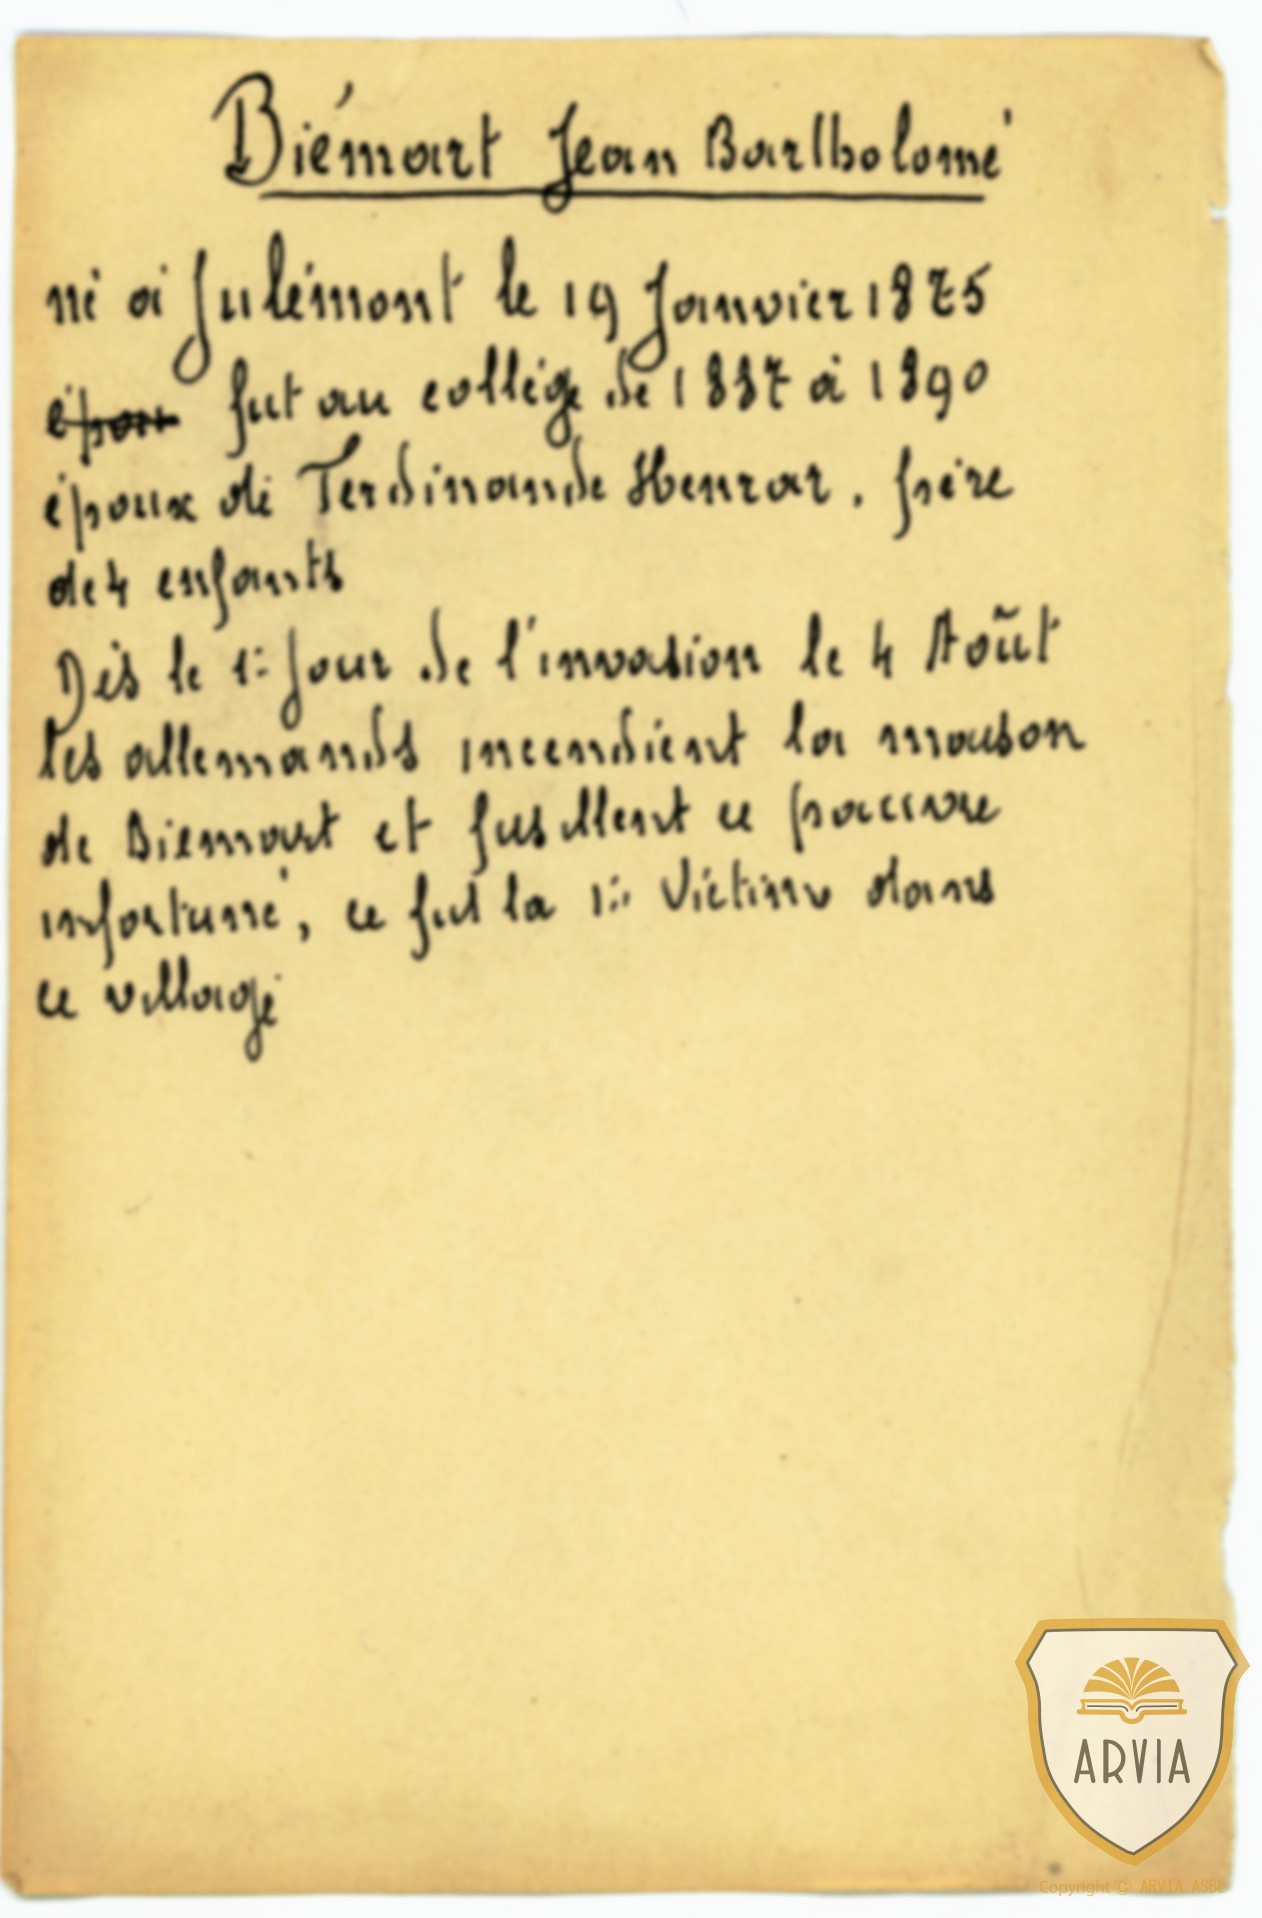 Biémart Jean Bartholomé
né à Julémont le 19 Janvier 1875
époux fut au collège de 1887 à 1890
époux de Ferdinande Henrar, père
de 4 enfants
Dès le 1er jour de l'invasion le 4 Août
les allemands incendient la maison
de Biemart et fusillent ce pauvre
infortuné, ce fut la 1ère Victime dans
ce village
ARVIA
Copyright © ARVIA ASBL